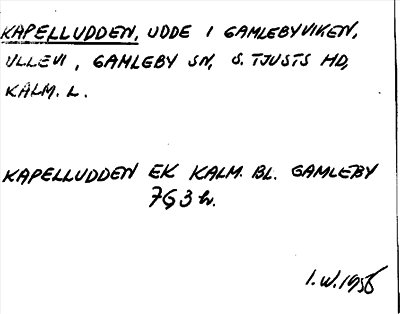 KAPELLUDDEN, UDDE I GAMLEBYVIKEN,
ULLEVI, GAMLEBY SN, S. TJUSTS HD,
KALM. L.
KAPELLUDDEN EK KALM. BL. GAMLEBY
7G3h.
I.W. 1956